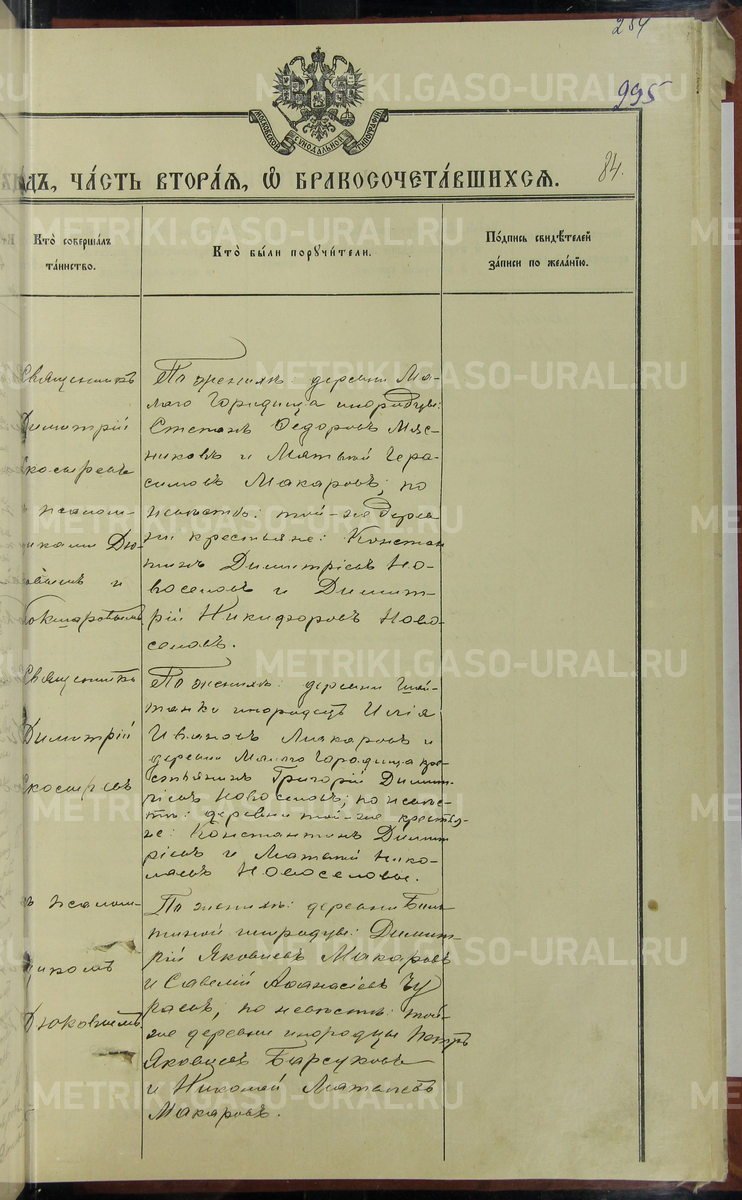 254
295
МОСКОВСКОЙ СѴНОДАЛЬНОЙ ТИПОГРАФІИ
ЧА́СТЬ ВТОРА́Я, Ѡ҆ БРАКОСОЧЕТА́ВШИХСЯ.
84.
Кто̀ соверша́лъ
та́инство.
Кто̀ бы́ли поручи́тели.
По́дпись свидѣ́телей
за́писи по жела́нїю.
Священникъ
Димитрій
Кокосыревъ
и
и
Священникъ
Димитрій
Кокосыревъ
съ псалом-
щикомъ
Дюковымъ
По женихѣ: деревни Ма-
лаго Городища инородцы:
Степанъ Ѳедоровъ Мяс-
никовъ и Матвѣй Гера-
симовъ Макаровъ; по
невѣстѣ: той-же дерев-
ни крестьяне: Констан-
тинъ Димитріевъ Но-
воселовъ и Димит-
рій Никифоровъ Ново-
селовъ.
По женихѣ: деревни Шай-
танки инородецъ Илія
Ивановъ Макаровъ и
деревни Малаго Городища кре-
стьянинъ Григорій Димит-
ріевъ Новоселовъ; по невѣс-
тѣ: деревни той-же крестья-
не: Константинъ Димит-
ріевъ и Матвѣй Нико-
лаевъ Новоселовы.
По женихѣ: деревни
инородцы: Димит-
рій Яковлевъ Макаровъ
и Савелій Аѳанасіевъ Чу
расвъ; по невѣстѣ: той-
же деревни инородцы Петръ
Яковлевъ Барсуковъ
и Николай Матвѣевъ
Макаровъ.
METRIKI.GASO-URAL.RU